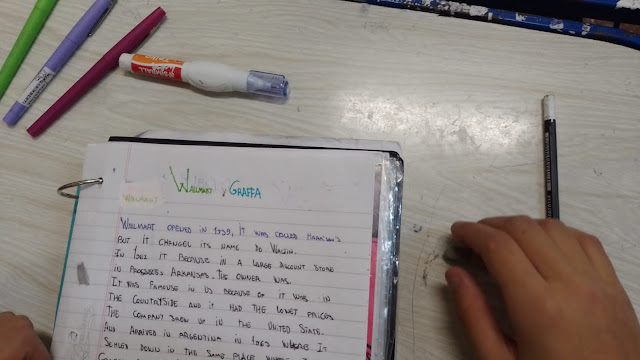 WALMART Y GRAFFA
WALMART
WALMART OPENED IN 1959, IT WAS CALLED HARRISON'S
BUT IT CHANGEL ITS NAME DO WALIN.
IN 1962 IT BECAUSE IN A LARGE DISCOUNT STORE
IN PROGRESS ARKANSAS. THE OWNER WAS.
IT WAS FAMOUSE IN US BECAUSE OF IT WAS IN
THE COUNTRTSIDE AND IT HAD THE LOWET PRICES
THE COMPANY SHOW UP IN THE UNITED STATE.
AND ARRIVED IN ARGENTINA IN WHERE IT
SEHLED DOWN IN THE SAME PLACE